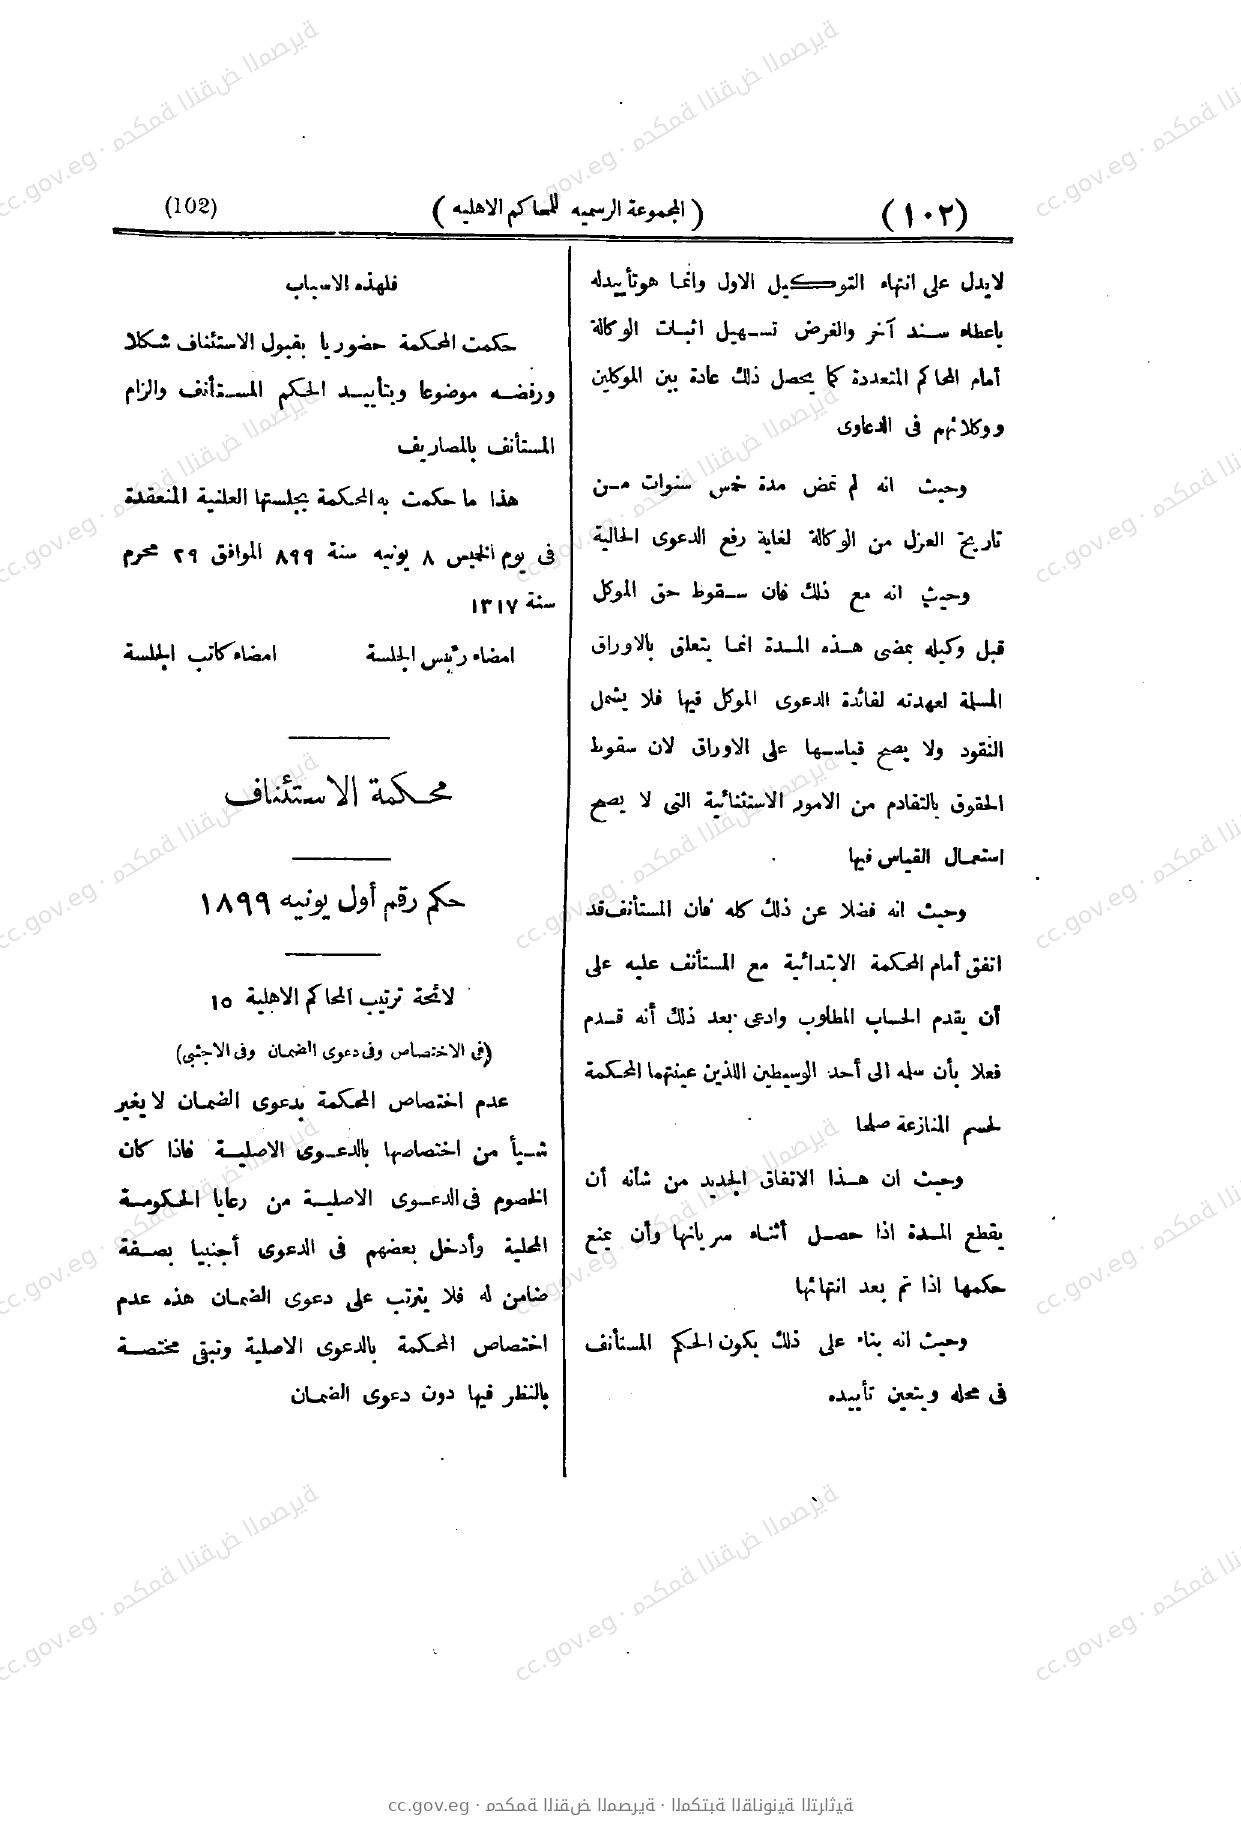 (١٠٢) (المجموعة الرسميه للمحاكم الاهليه) (102)
لا يدل على انتهاء التوكيل الاول وانما هو تأييد له
باعطاء سند آخر والغرض تسهيل اثبات الوكالة
أمام المحاكم المتعددة كما يحصل ذلك عادة بين الموكلين
ووكلائهم فى الدعاوى
وحيث انه لم تمض مدة خمس سنوات من
تاريخ العزل من الوكالة لغاية رفع الدعوى الحالية
وحيث انه مع ذلك فان سقوط حق الموكل
قبل وكيله بمضى هذه المدة انما يتعلق بالاوراق
المسلمة لعهدته لفائدة الدعوى الموكل فيها فلا يشمل
النقود ولا يصح قياسها على الاوراق لان سقوط
الحقوق بالتقادم من الامور الاستثنائية التى لا يصح
استعمال القياس فيها
وحيث انه فضلا عن ذلك كله فان المستأنف قد
اتفق أمام المحكمة الابتدائية مع المستأنف عليه على
أن يقدم الحساب المطلوب وادعى بعد ذلك أنه قدم
فعلا بأن سلمه الى أحد الوسيطين اللذين عينتهما المحكمة
لحسم المنازعة صلحا
وحيث ان هذا الاتفاق الجديد من شأنه أن
يقطع المدة اذا حصل أثناء سريانها وأن يمنع
حكمها اذا تم بعد انتهائها
وحيث انه بناء على ذلك يكون الحكم المستأنف
فى محله ويتعين تأييده
فلهذه الاسباب
حكمت المحكمة حضوريا بقبول الاستئناف شكلا
ورفضه موضوعا وبتأييد الحكم المستأنف والزام
المستأنف بالمصاريف
هذا ما حكمت به المحكمة بجلستها العلنية المنعقدة
فى يوم الخميس ٨ يونيه سنة ٨٩٩ الموافق ٢٩ محرم
سنة ١٣١٧
امضاء رئيس الجلسة امضاء كاتب الجلسة
محكمة الاستئناف
حكم رقم أول يونيه ١٨٩٩
لائحة ترتيب المحاكم الاهلية ١٥
(فى الاختصاص وفى دعوى الضمان وفى الاجنبى)
عدم اختصاص المحكمة بدعوى الضمان لا يغير
شيأ من اختصاصها بالدعوى الاصلية فاذا كان
الخصوم فى الدعوى الاصلية من رعايا الحكومة
المحلية وأدخل بعضهم فى الدعوى أجنبيا بصفة
ضامن له فلا يترتب على دعوى الضمان هذه عدم
اختصاص المحكمة بالدعوى الاصلية وتبقى مختصة
بالنظر فيها دون دعوى الضمان
cc.gov.eg · محكمة النقض المصرية · المكتبة القانونية التراثية